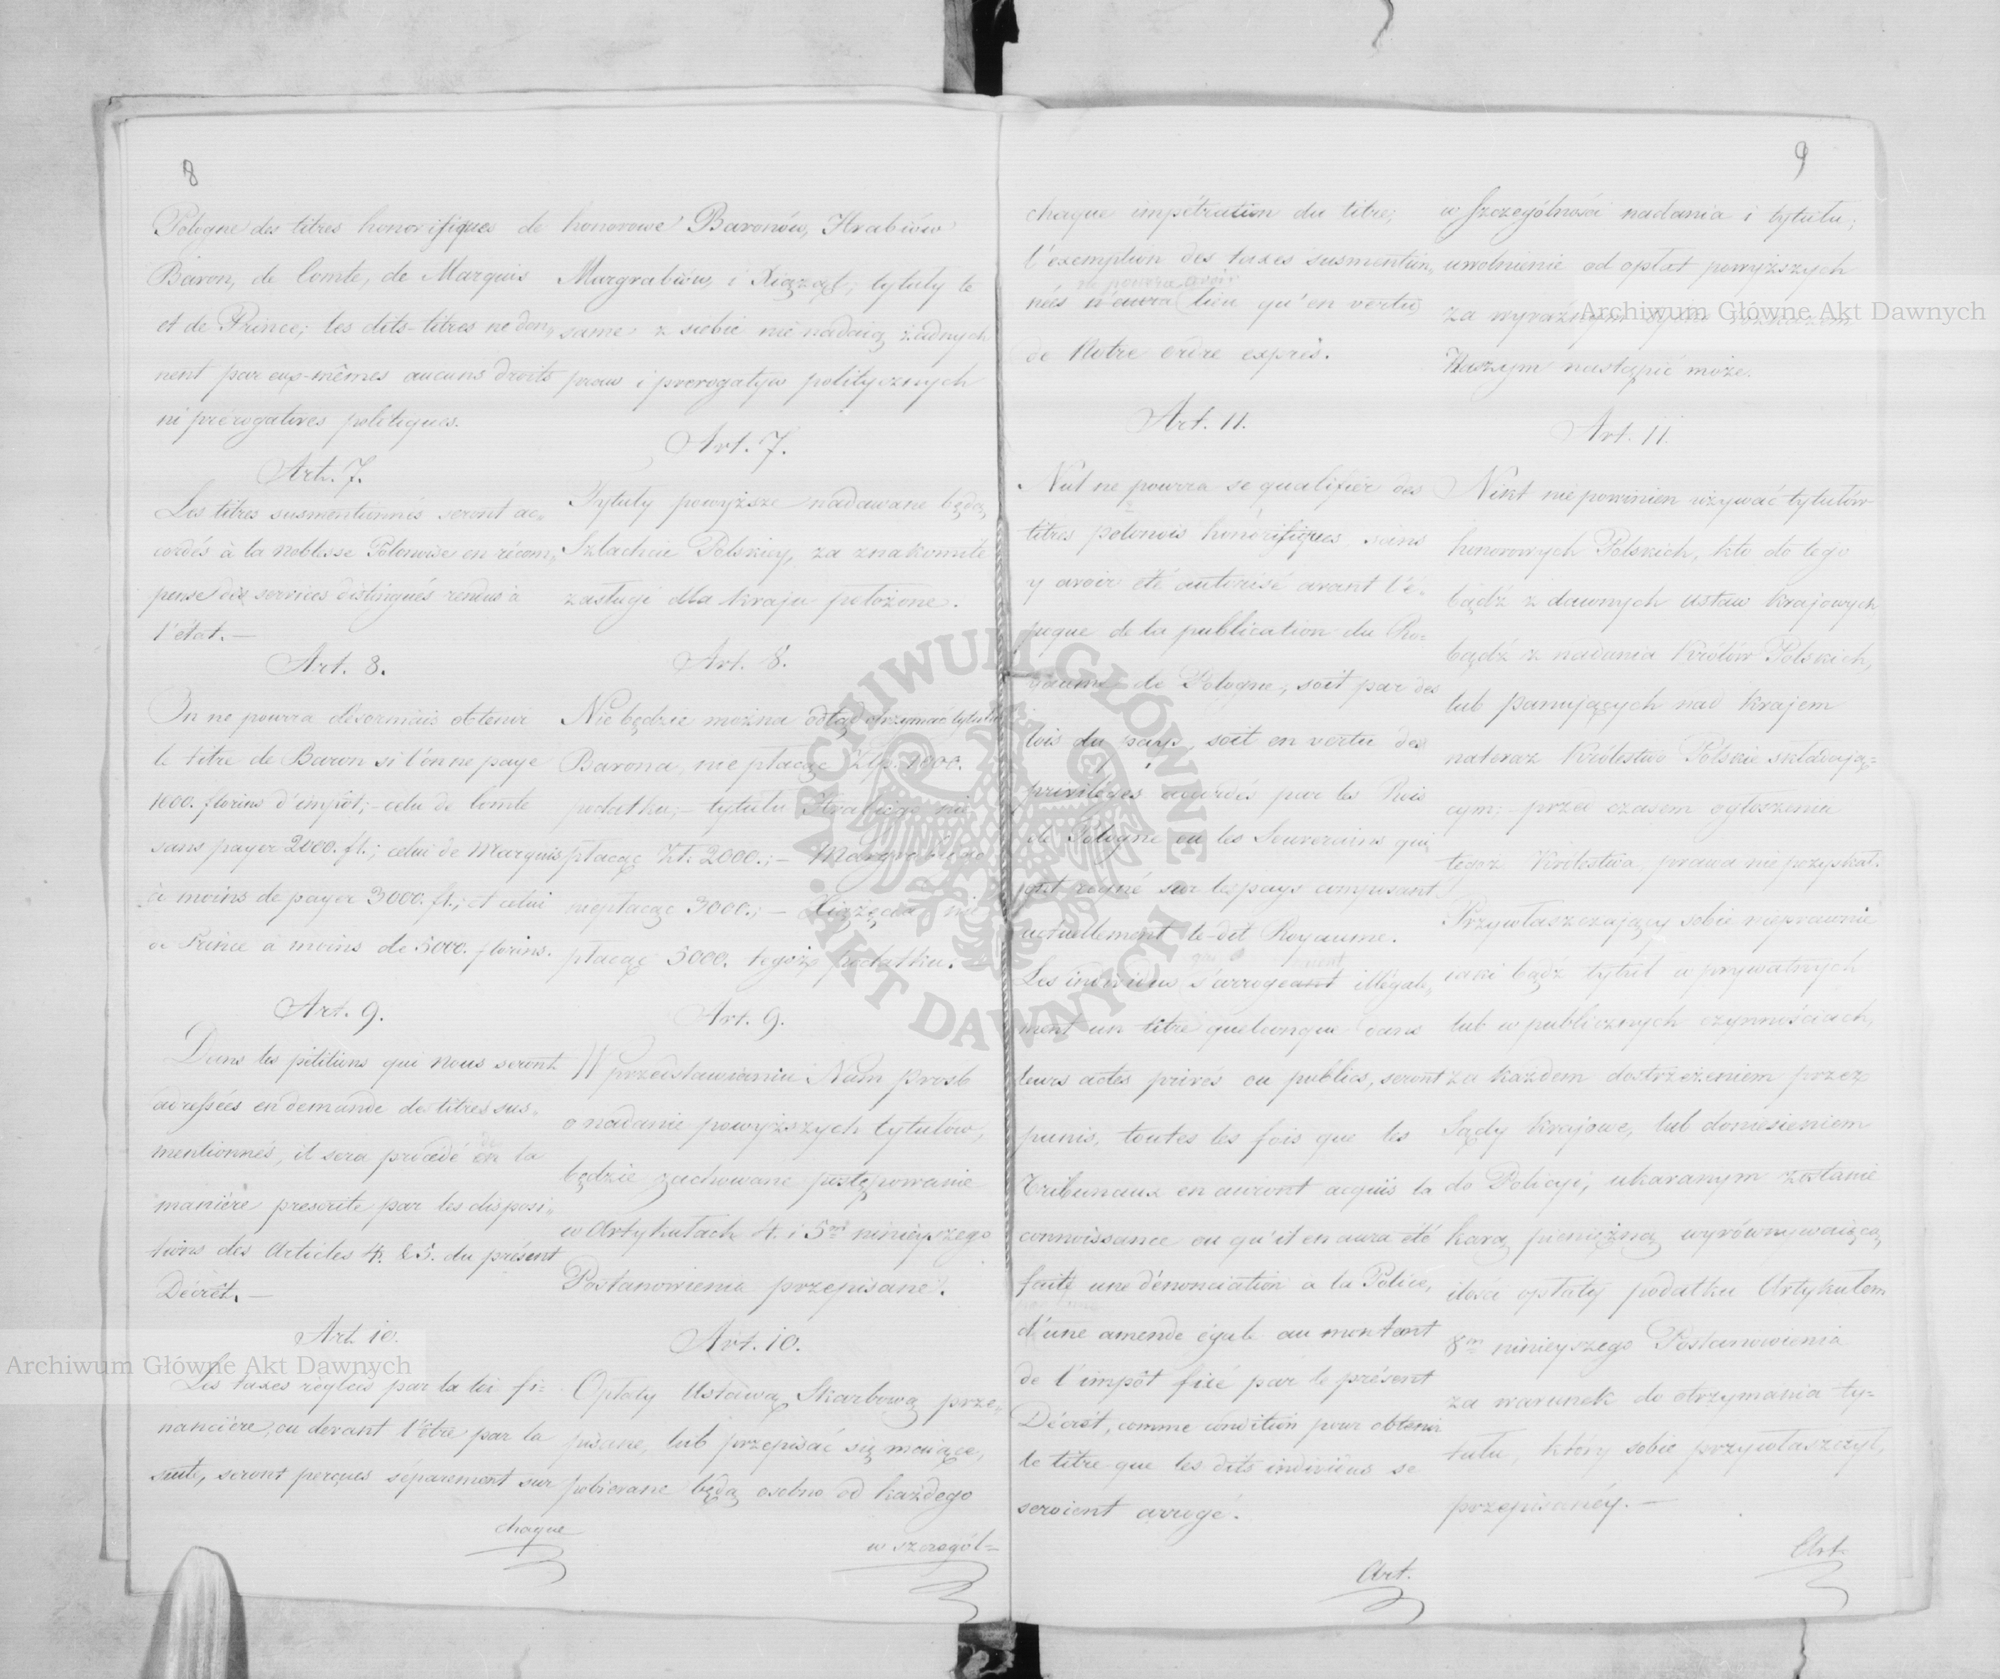 8
Pologne des titres honorifiques de
Baron, de Comte, de Marquis
et de Prince; les dits-titres ne don-
nent par eux-mêmes aucuns droits
ni prérogatives politiques.
Art. 7.
Les titres susmentionnés seront ac-
cordés à la noblesse Polonoise en récom-
pense des services distingués rendus à
l'état. —
Art. 8.
On ne pourra désormais obtenir
le titre de Baron si l'on ne paye
1000. florins d'impôt; - celui de Comte
sans payer 2000. fl.; celui de Marquis
à moins de payer 3000. fl.; et celui
de Prince à moins de 5000. florins.
Art. 9.
Dans les pétitions qui nous seront
adressées en demande des titres sus-
mentionnés, il sera procédé de la
manière prescrite par les disposi-
tions des Articles 4. & 5. du présent
Décrêt. —
Art. 10.
Les taxes règlées par la loi fi-
nancière, ou devant l'être par la
suite, seront perçues séparement sur
chaque
honorowe Baronów, Hrabiów
Margrabiów, i Xiążąt; tytuły te
same z siebie nie nadaią żadnych
praw i prerogatyw politycznych
Art. 7.
Tytuły powyższe nadawane będą
Szlachcie Polskiey, za znakomite
zasługi dla kraju położone.
Art. 8.
Nie będzie można odtąd otrzymać tytułu
Barona, nie płacąc Złp. 1000.
podatku; — tytułu Hrabiego nie
płacąc Zł. 2000.; — Margrabiego
niepłacąc 3000.; — Xiążęcia nie
płacąc 5000. tegoż podatku. —
Art. 9.
W przedstawianiu Nam prośb
o nadanie powyższych tytułów,
będzie zachowane postępowanie
w Artykułach 4. i 5m ninieyszego
Postanowienia przepisane.
Art. 10.
Opłaty Ustawą Skarbową prze-
pisane, lub przepisać się maiące,
pobierane będą osobno od każdego
w szczegól-
9
chaque impétration du titre;
l'exemption des taxes susmention-
ne pourra avoir
nées n'aura lieu qu'en vertu
de Notre ordre exprès.
Art. 11.
Nul ne pourra se qualifier des
titres polonois honorifiques sans
y avoir été autorisé avant l'é-
poque de la publication du Ro-
yaume de Pologne, soit par des
lois du pays, soit en vertu des
privilèges accordés par les Rois
de Pologne ou les Souverains qui
ont regné sur les pays composant
actuellement le-dit Royaume.
qui
Les individus s'arrogeant illégale-
ment un titre quelconque dans
leurs actes privés ou publics, seront
punis, toutes les fois que les
Tribunaux en auront acquis la
connoissance ou qu'il en aura été
faite une dénonciation a la Police,
d'une amende égale au montant
de l'impôt fixé par le présent
Décrêt, comme condition pour obtenir
le titre que les dits individus se
seroient arrogé.
Art.
w szczególności nadania i tytułu;
uwolnienie od opłat powyższych
za wyraźnym tylko rozkazem
Naszym nastąpić może.
Art. 11.
Nikt nie powinien używać tytułów
honorowych Polskich, kto do tego
bądź z dawnych ustaw krajowych
bądź z nadania Królów Polskich,
lub panujących nad krajem
nateraz Królestwo Polskie składają-
cym; przed czasem ogłoszenia
tegoż Królestwa, prawa nie pozyskał.
Przywłaszczający sobie nieprawnie
iaki bądź tytuł w prywatnych
lub w publicznych czynnościach,
za każdem dostrzeżeniem przez
Sądy krajowe, lub doniesieniem
do Policyi, ukaranym zostanie
karą pieniężną, wyrównywaiącą
ilości opłaty podatku Artykułem
8m ninieyszego Postanowienia
za warunek do otrzymania ty-
tułu, który sobie przywłaszczył,
przepisanéy. —
Art.
Archiwum Główne Akt Dawnych
Archiwum Główne Akt Dawnych
ARCHIWUM GŁÓWNE · AKT DAWNYCH ·